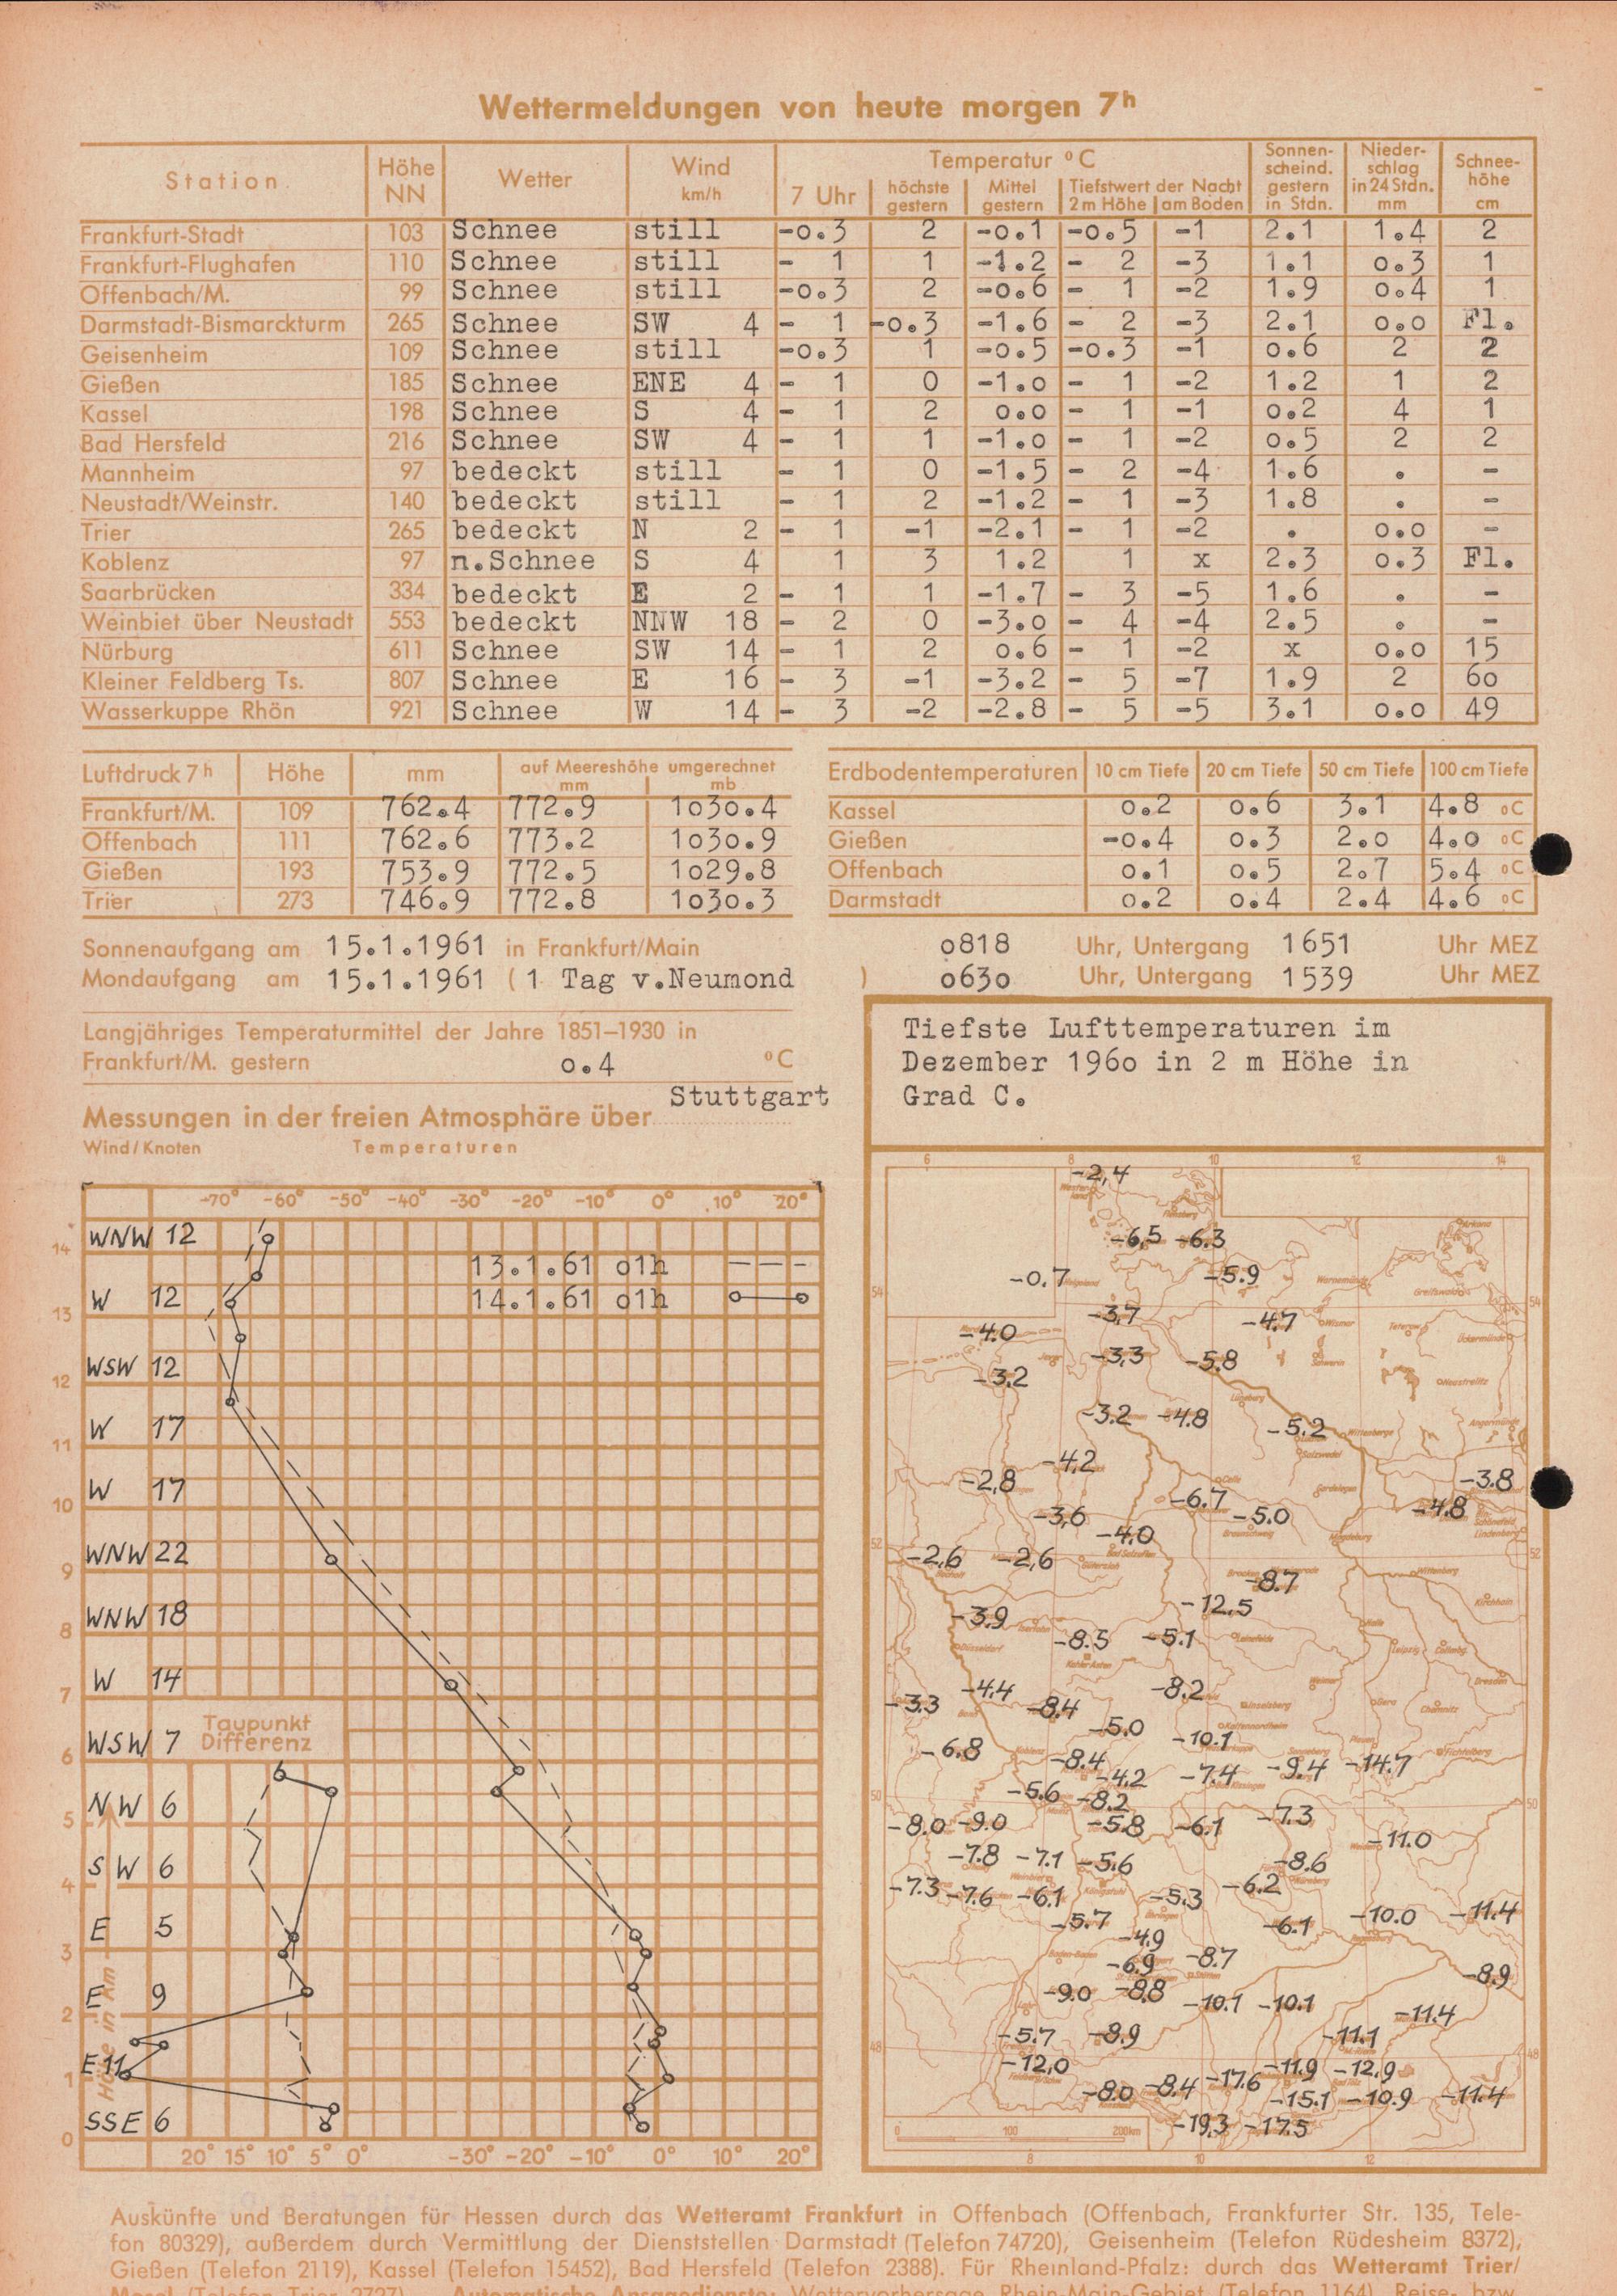 Wettermeldungen von heute morgen 7h
Station Höhe NN Wetter Wind km/h Temperatur °C Sonnenscheind. gestern in Stdn. Niederschlag in 24 Stdn. mm Schneehöhe cm
7 Uhr höchste gestern Mittel gestern Tiefstwert der Nacht 2 m Höhe am Boden
Frankfurt-Stadt 103 Schnee still -0.3 2 -0.1 -0.5 -1 2.1 1.4 2
Frankfurt-Flughafen 110 Schnee still - 1 1 -1.2 - 2 -3 1.1 0.3 1
Offenbach/M. 99 Schnee still -0.3 2 -0.6 - 1 -2 1.9 0.4 1
Darmstadt-Bismarckturm 265 Schnee SW 4 - 1 -0.3 -1.6 - 2 -3 2.1 0.0 Fl.
Geisenheim 109 Schnee still -0.3 1 -0.5 -0.3 -1 0.6 2 2
Gießen 185 Schnee ENE 4 - 1 0 -1.0 - 1 -2 1.2 1 2
Kassel 198 Schnee S 4 - 1 2 0.0 - 1 -1 0.2 4 1
Bad Hersfeld 216 Schnee SW 4 - 1 1 -1.0 - 1 -2 0.5 2 2
Mannheim 97 bedeckt still - 1 0 -1.5 - 2 -4 1.6 . -
Neustadt/Weinstr. 140 bedeckt still - 1 2 -1.2 - 1 -3 1.8 . -
Trier 265 bedeckt N 2 - 1 -1 -2.1 - 1 -2 . 0.0 -
Koblenz 97 n.Schnee S 4 1 3 1.2 1 x 2.3 0.3 Fl.
Saarbrücken 334 bedeckt E 2 - 1 1 -1.7 - 3 -5 1.6 . -
Weinbiet über Neustadt 553 bedeckt NNW 18 - 2 0 -3.0 - 4 -4 2.5 . -
Nürburg 611 Schnee SW 14 - 1 2 0.6 - 1 -2 x 0.0 15
Kleiner Feldberg Ts. 807 Schnee E 16 - 3 -1 -3.2 - 5 -7 1.9 2 60
Wasserkuppe Rhön 921 Schnee W 14 - 3 -2 -2.8 - 5 -5 3.1 0.0 49
Luftdruck 7h Höhe mm auf Meereshöhe umgerechnet mm mb
Frankfurt/M. 109 762.4 772.9 1030.4
Offenbach 111 762.6 773.2 1030.9
Gießen 193 753.9 772.5 1029.8
Trier 273 746.9 772.8 1030.3
Erdbodentemperaturen 10 cm Tiefe 20 cm Tiefe 50 cm Tiefe 100 cm Tiefe
Kassel 0.2 0.6 3.1 4.8 °C
Gießen -0.4 0.3 2.0 4.0 °C
Offenbach 0.1 0.5 2.7 5.4 °C
Darmstadt 0.2 0.4 2.4 4.6 °C
Sonnenaufgang am 15.1.1961 in Frankfurt/Main 0818 Uhr, Untergang 1651 Uhr MEZ
Mondaufgang am 15.1.1961 (1 Tag v.Neumond ) 0630 Uhr, Untergang 1539 Uhr MEZ
Langjähriges Temperaturmittel der Jahre 1851–1930 in
Frankfurt/M. gestern 0.4 °C
Messungen in der freien Atmosphäre über Stuttgart
Wind/Knoten Temperaturen
-70° -60° -50° -40° -30° -20° -10° 0° 10° 20°
WNW 12
14
13.1.61 01h
14.1.61 01h
W 12
13
WSW 12
12
W 17
11
W 17
10
WNW 22
9
WNW 18
8
W 14
7
WSW 7
Taupunkt
Differenz
6
NW 6
5
SW 6
4
E 5
3
E 9
2
E 11
1
SSE 6
0
Höhe in km
20° 15° 10° 5° 0° -30° -20° -10° 0° 10° 20°
Tiefste Lufttemperaturen im
Dezember 1960 in 2 m Höhe in
Grad C.
6 8 10 12 14
-2,4
-6,5 -6.3
-0.7 -5.9
54 54
-3,7 -4.7
-4.0
-3,3 -5.8
-3.2
-3.2 -4.8 -5.2
-4,2
-2,8 -3.8
-6.7 -4.8
-3,6 -5.0
-4.0
52 52
-2,6 -2,6
-8.7
-12,5
-3.9
-8.5 -5.1
-4.4 -8.2
-3.3 -8.4
-5.0 -10.1
-6.8 -8.4 -9.4 -14.7
-4.2 -7.4
-5.6 -8.2
50 50
-8.0 -9.0 -5.8 -6.1 -7.3
-11.0
-7.8 -7.1 -5.6 -8.6
-7.3 -7.6 -6.1 -5.3 -6.2
-5.7 -6.1 -10.0 -11.4
-4.9
-6.9 -8.7
-8.9
-9.0 -8.8 -10.1 -10.1
-11.4
-5.7 -8.9 -11.1
48 48
-12,0 -11.9 -12,9
-8.0 -8.4 -17.6 -15.1 -10.9 -11.4
-19.3 -17.5
0 100 200km
8 10 12
Auskünfte und Beratungen für Hessen durch das Wetteramt Frankfurt in Offenbach (Offenbach, Frankfurter Str. 135, Tele-
fon 80329), außerdem durch Vermittlung der Dienststellen Darmstadt (Telefon 74720), Geisenheim (Telefon Rüdesheim 8372),
Gießen (Telefon 2119), Kassel (Telefon 15452), Bad Hersfeld (Telefon 2388). Für Rheinland-Pfalz: durch das Wetteramt Trier/